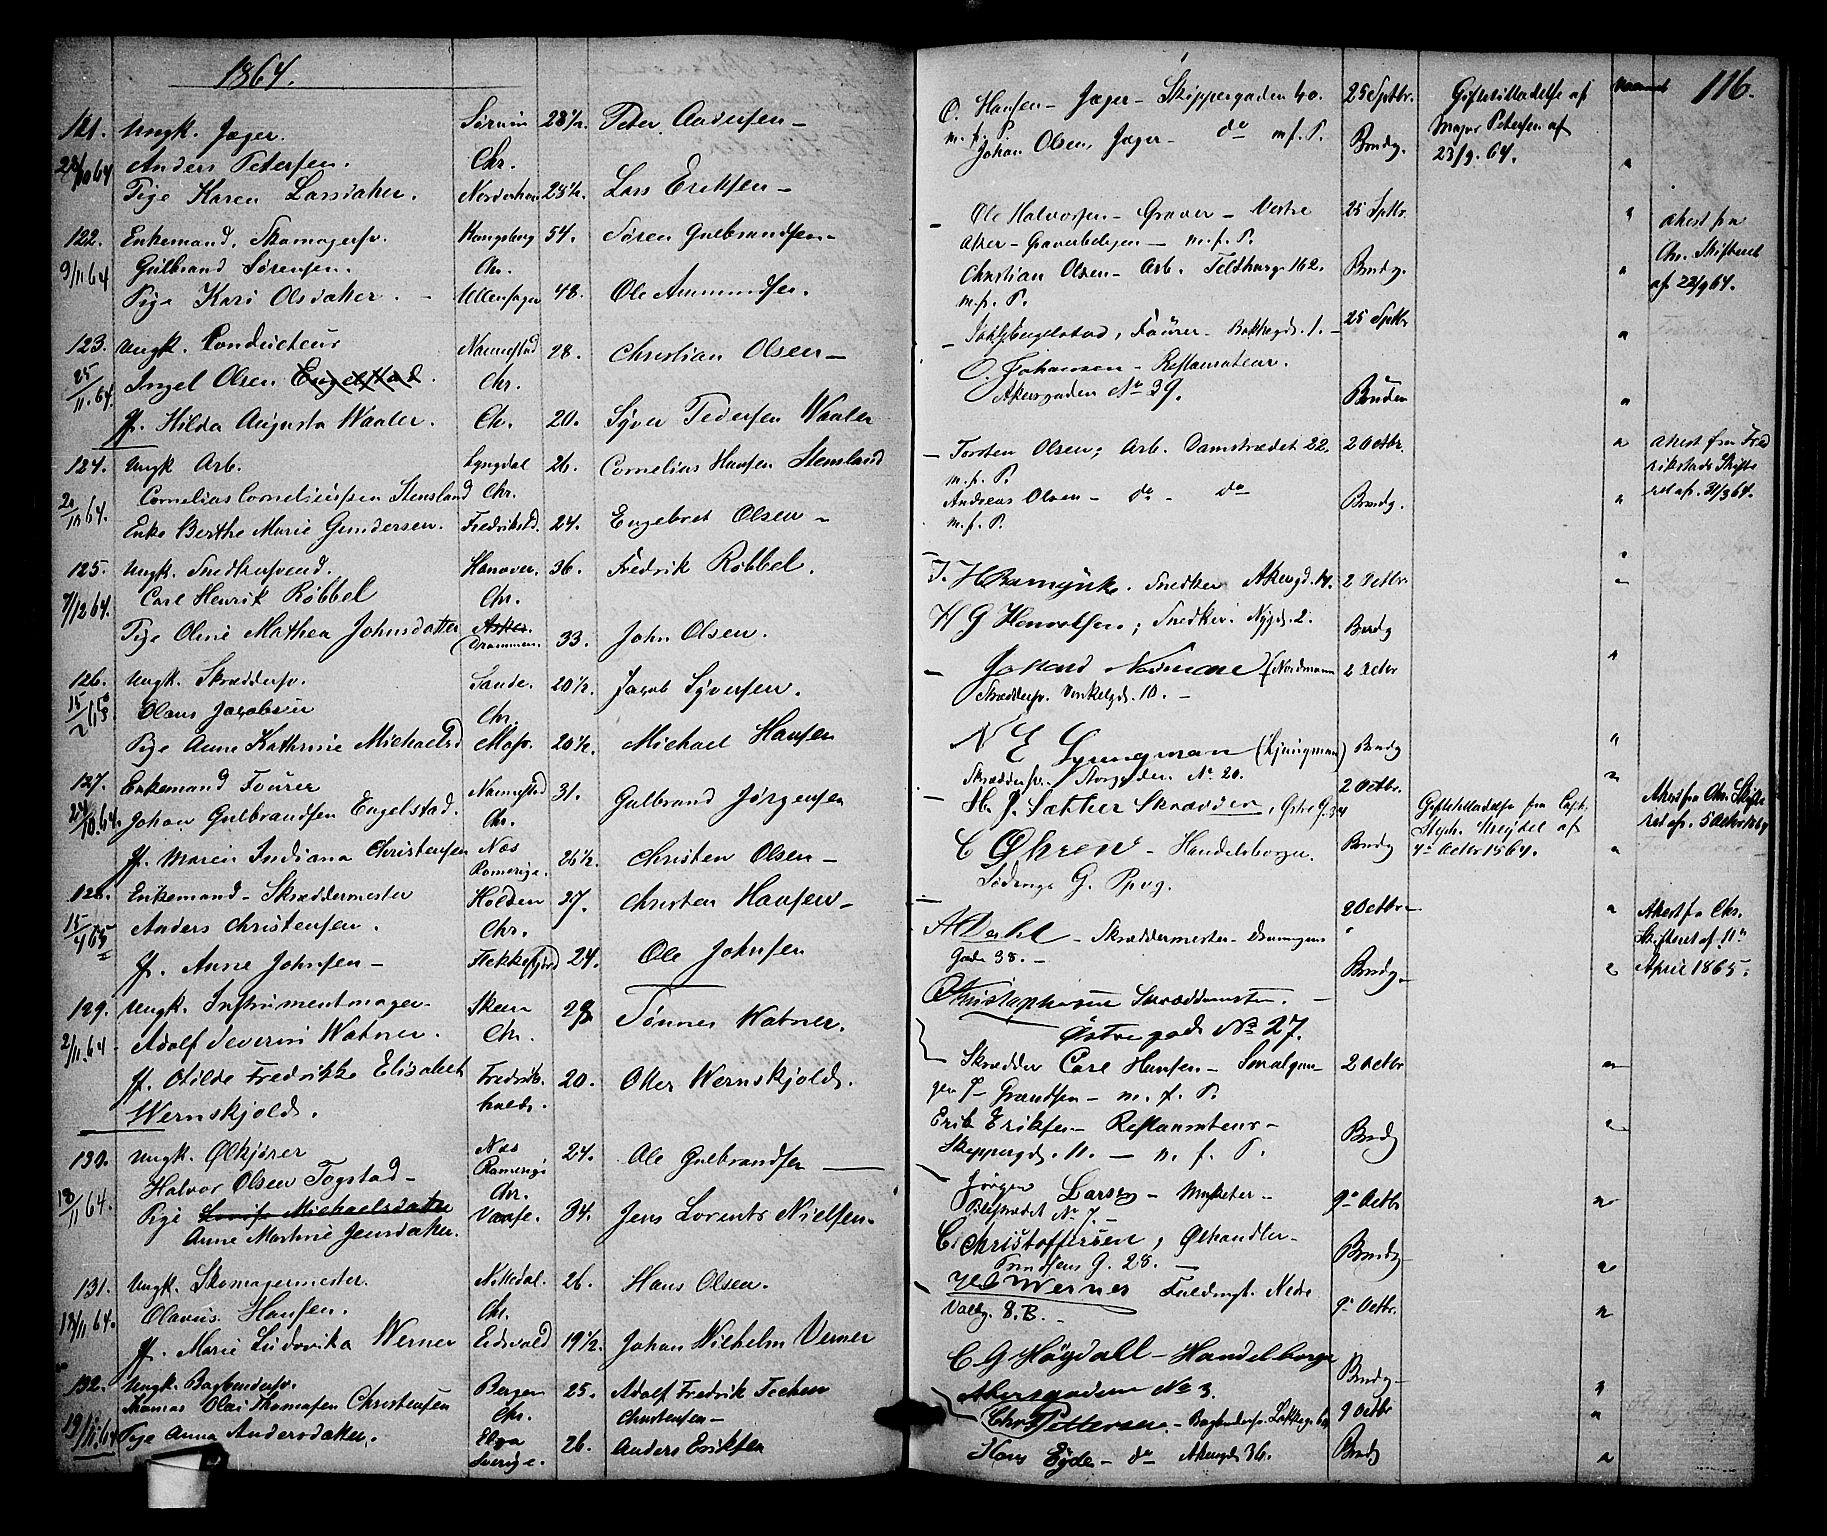 1864.
121. Ungk. Jæger. Sørum 28 1/2. Peter Andersen –
24/10 64 Anders Petersen. Chr.
Pige Karen Larsdatter. Norderhou 25 1/2. Lars Eriksen –
122. Enkemand, Skomagersv. Kongsberg 54. Søren Gulbrandsen –
9/11 64 Gulbrand Sørensen. Chr.
Pige Kari Olsdatter. – Ullensager 48. Ole Amundsen.
123. Ungk. Conducteur Nannestad 28. Christian Olsen –
25/11. 64 Ingel Olsen Engelstad. Chr.
J. Hilda Augusta Waaler. Chr. 20. Syver Pedersen Waaler
124. Ungk Arb. Lyngdal 26. Cornelius Hansen Stensland
20/10 64. Cornelius Corneliussen Stensland Chr.
Enke Berthe Marie Gundersen. Fredrikstd. 24. Engebret Olsen –
125. Ungk. Snedkersvend. Hanover. 36. Fredrik Röbbel.
7/12 64. Carl Henrik Röbbel Chr.
Pige Oline Mathea Johnsdatter Asker. (Drammen. 33. John Olsen.
126. Ungk. Skræddersv. Sande. 20 1/2. Jacob Syversen.
15/2 65 Olaus Jacobsen Chr.
Pige Anne Kathrine Michaelsd Moss. 20 1/2. Michael Hansen
127. Enkemand Fourer Nannestad 31. Gulbrand Jørgensen
24/10. 64. Johan Gulbrandsen Engelstad. Chr.
J. Maren Indiana Christensen Næs Romerige. 26 1/2. Christen Olsen –
128. Enkemand – Skræddermester Holden 27. Christen Hansen –
15/4 65 Anders Christensen. Chr.
J. Anne Johnsen – Flekkefjord 24. Ole Johnsen
129. Ungk. Instrumentmager – Skeen 28 Tønnes Watner.
2/11. 64. Adolf Severin Watner. Chr.
J. Otilde Fredrikke Elisabeth Fredriks- 20. Otter Wernskjold.
Wernskjold. hald.
130. Ungk. Ølkjører Næs Romerige 24. Ole Gulbrandsen
18/11 64. Halvor Olsen Togstad – Chr.
Pige Lovise Michaelsdatter Vaase. 34. Jens Lorents Nielsen.
Anne Martine Jensdatter.
131. Ungk. Skomagermester. Nittedal. 26. Hans Olsen.
18/11 64. Olavus Hansen. Chr.
J. Marie Ludovika Werner Eidsvold 19 1/2. Johan Wilhelm Verner
132. Ungk. Bogbindersv. Bergen 25. Adolf Fredrik
Thomas Olai Thomasen Christensen Chr. Christensen –
19/11. 64 Pige Anna Andersdatter. Sverige. 26. Anders Eriksen
116.
O. Hansen – Jæger – Skippergaden 40. 25 Sptbr. Giftetilladelse af
m. f. P.
Johan Olsen, Jæger – do m. f. P. Brudg. Major Petersen af
23/9. 64.
– Ole Halvorsen – Graver – Vestre 25 Sptbr. Attest fra
Aker – Graverboligen – m. f. P. Chr. Skifteret
Christian Olsen – Arb. Toldbugd. 162. Brudg. af 22/9 64.
m. f. P.
– Engelstad, Fourer – Bakkegd. 1. – 25 Sptbr
O. Johansen – Restaurateur.
Akersgaden No 39. Bruden
– Torsten Olsen; Arb. Damstrædet 22. 2 Octbr. Attest fra Fred
m. f. P. rikstads Skifte
Andreas Olsen – do – do Brudg. ret af. 31/3 64.
m. f. P.
Snedker Akersgd. 14. 2 Octbr
H G Snedker. Nygd. 2. Brudg
– (Nordmann 2 Octbr
Skræddersv. Vinkelgd. 10. –
N E Ljungman (Ljungman) Brudg
Skræddersv. Storgaden No. 20. 2 Octbr.
– H. J. Sætther Skrædder, Østre G. 34 Giftetilladelse fra Capt. Attest fra Chr. Skifte
af ret af. 5 Octbr 1864
C Øhren – Handelsborger. Brudg 4de Octbr 1864.
Sødrings G. Ppvg.
– A Dahl – Skræddermester – Dronningens 2 Octbr – Attest fra Chr.
Gade 38. – Skifteret af 11te
Brudg – April 1865.
Christophersen Skræddermster. –
Østre gade No 27.
Skrædder Carl Hansen – Smalgan- 2 Octbr
gen 7 – Grændsen – m. f. P.
Erik Eriksen – Restaurateur –
Skippergd. 11. – m. f. P. Brudg
Jørgen Larsen – Musketer – 9de Octbr
No 7. –
C. Christoffersen, Ølhandler –
G. 28. – Brudg
Werner Fuldmgt. Nedre
Voldg. 8. B. – 9de Octbr.
C G Høydahl – Handelborger
Akersgaden No 3. Brudg –
Chr. Pettersen. – Bogbindersv. 9 Octbr
Hans Eyde – do Akersgd. 36. Brudg